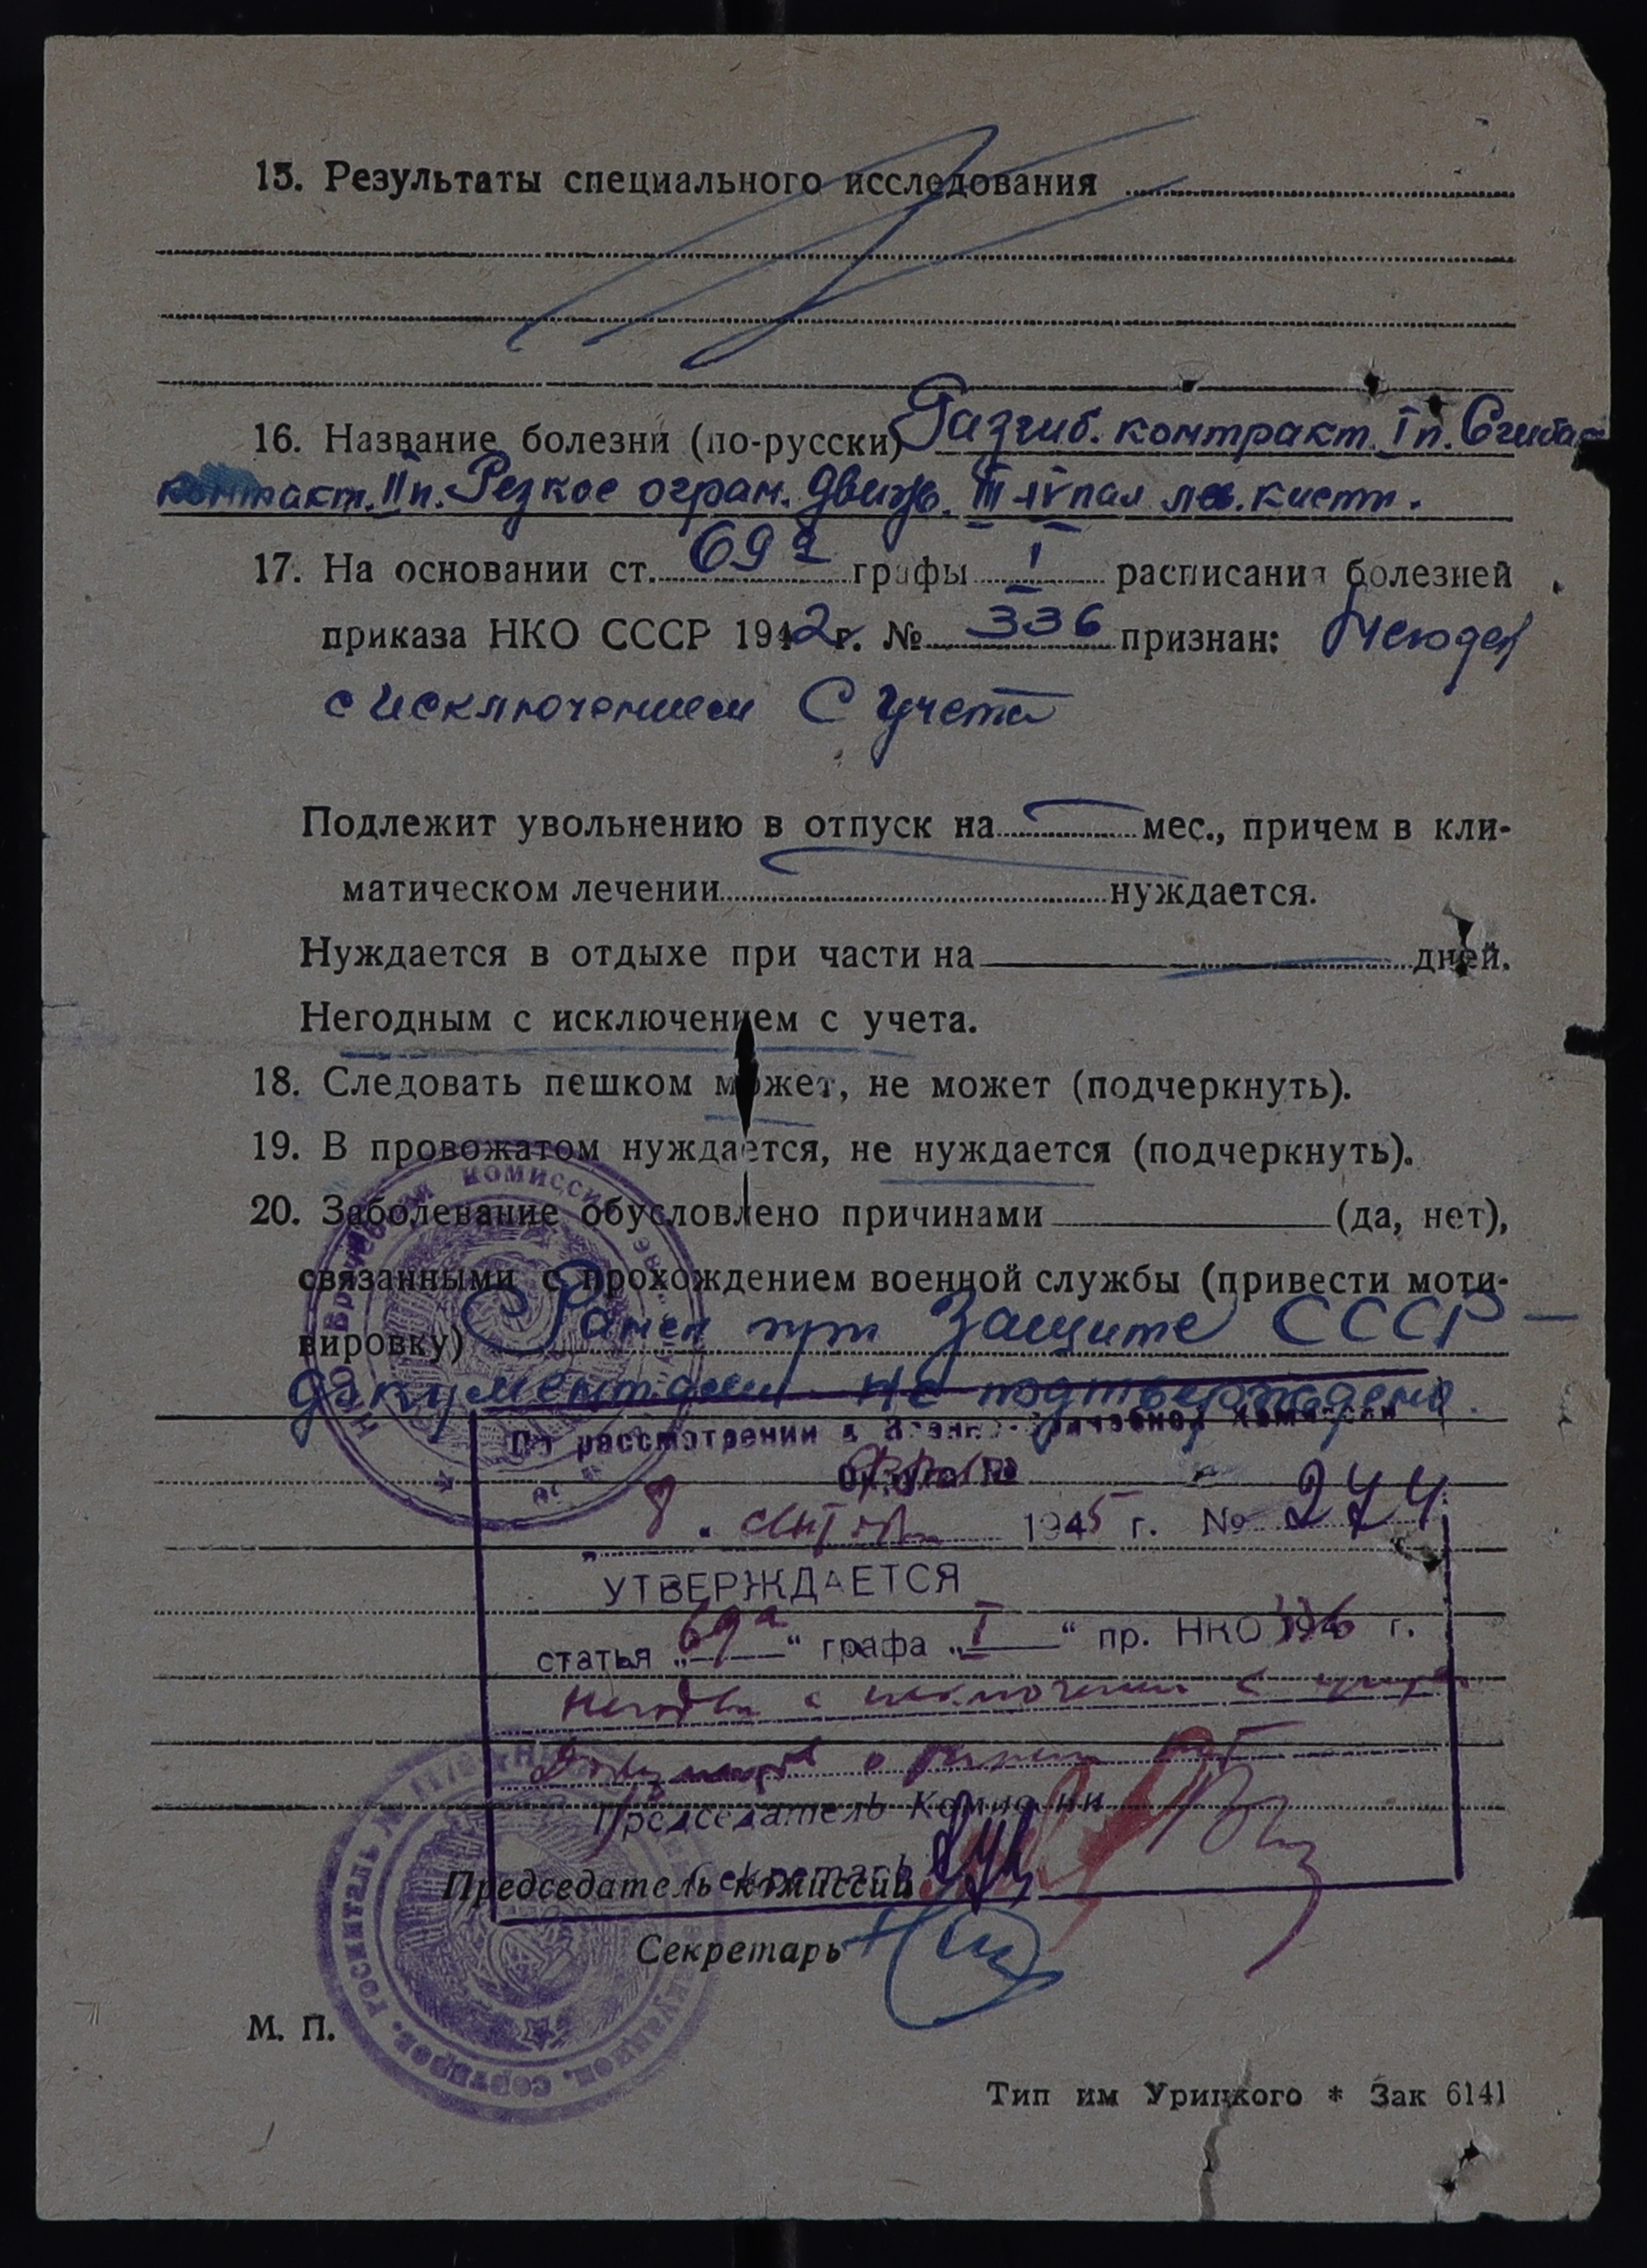 15. Результаты специального исследования
16. Название болезни (по-русски) Разгиб. контракт. I п. Сгибат
контракт. II п. Резкое огран. движ. III-IV пал лев. кисти.
17. На основании ст. 69а графы I расписания болезней
приказа НКО СССР 1942 г. № 336 признан: Негоден
с исключением с учета
Подлежит увольнению в отпуск на мес., причем в кли-
матическом лечении нуждается.
Нуждается в отдыхе при части на дней.
Негодным с исключением с учета.
18. Следовать пешком может, не может (подчеркнуть).
19. В провожатом нуждается, не нуждается (подчеркнуть).
20. Заболевание обусловлено причинами (да, нет),
связанными с прохождением военной службы (привести моти-
вировку) Ранен при Защите СССР —
документами не подтверждено.
По рассмотрении в Военно-Врачебной Комиссии
Округа
8 . сентября 1945 г. № 274
УТВЕРЖДАЕТСЯ
статья „69а“ графа „I“ пр. НКО 336 г.
негоден с исключением с учета
Председатель Комиссии
Секретарь
Председатель комиссии
Секретарь
М. П.
Тип им Урицкого * Зак 6141